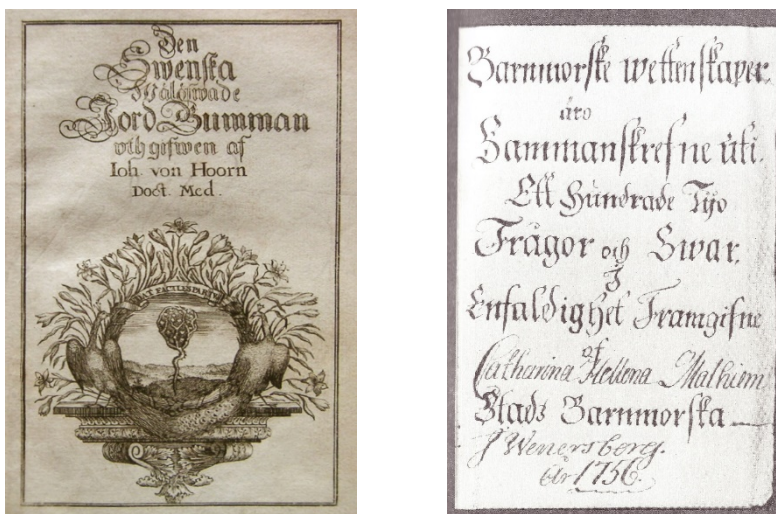 Den
Swenska
Wälöfwade
Jord-Gumman
uth gifwen af
Ioh. von Hoorn
Doct. Med.
Barnmorske wettenskaper
äro
Sammanskrefne uti
Ett Hundrade Tijo
Frågor och Swar,
I
Enfaldighet Framgifne
af
Catharina Hellena Malhiem
Stads Barnmorska
J Wenersborg.
År 1756.